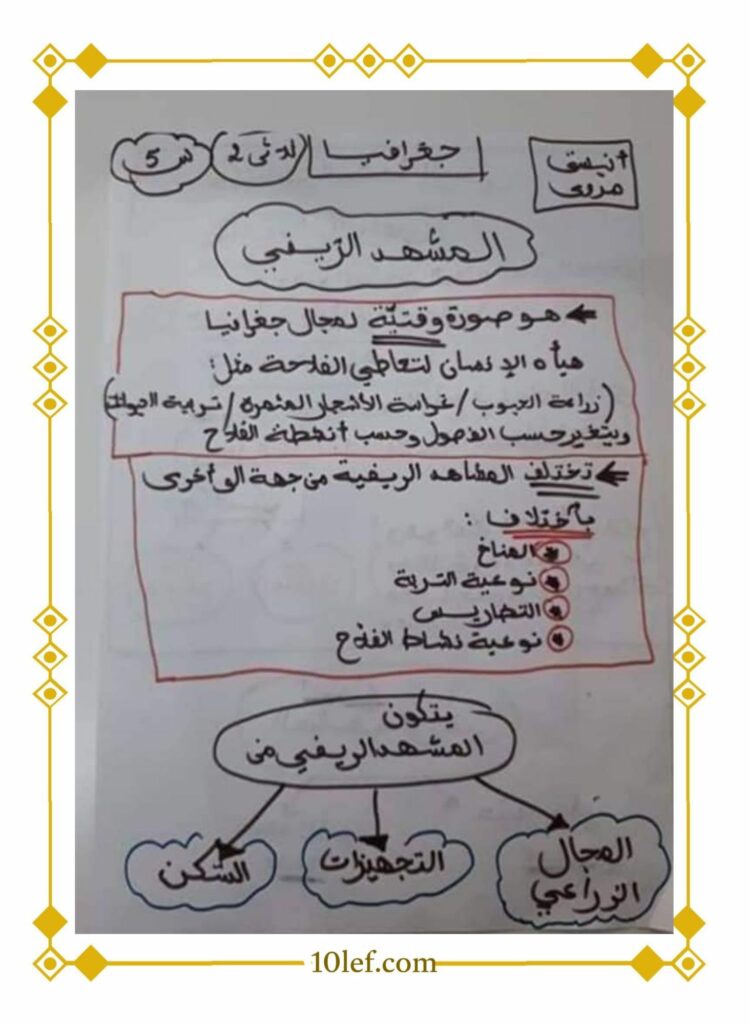 أنيستي مروى
جغرافيا
ثلاثي 2
س 5
المشهد الريفي
هو صورة وقتيّة لمجال جغرافيا
هيأه الإنسان لتعاطي الفلاحة مثل:
(زراعة الحبوب / غراسة الأشجار المثمرة / تربية الحيوانات)
ويتغير حسب الفصول وحسب أنشطة الفلاح
تختلف المشاهد الريفية من جهة الى أخرى
بإختلاف :
المناخ
نوعية التربة
التضاريس
نوعية نشاط الفلاح
يتكون
المشهد الريفي من
المجال الزراعي
التجهيزات
السّكن
10lef.com